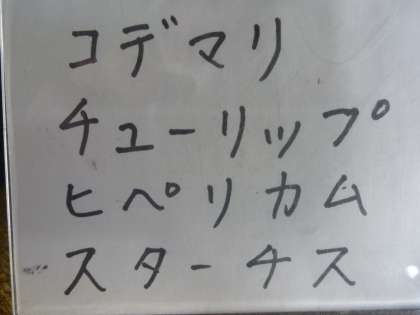 コデマリ
チューリップ
ヒペリカム
スターチス